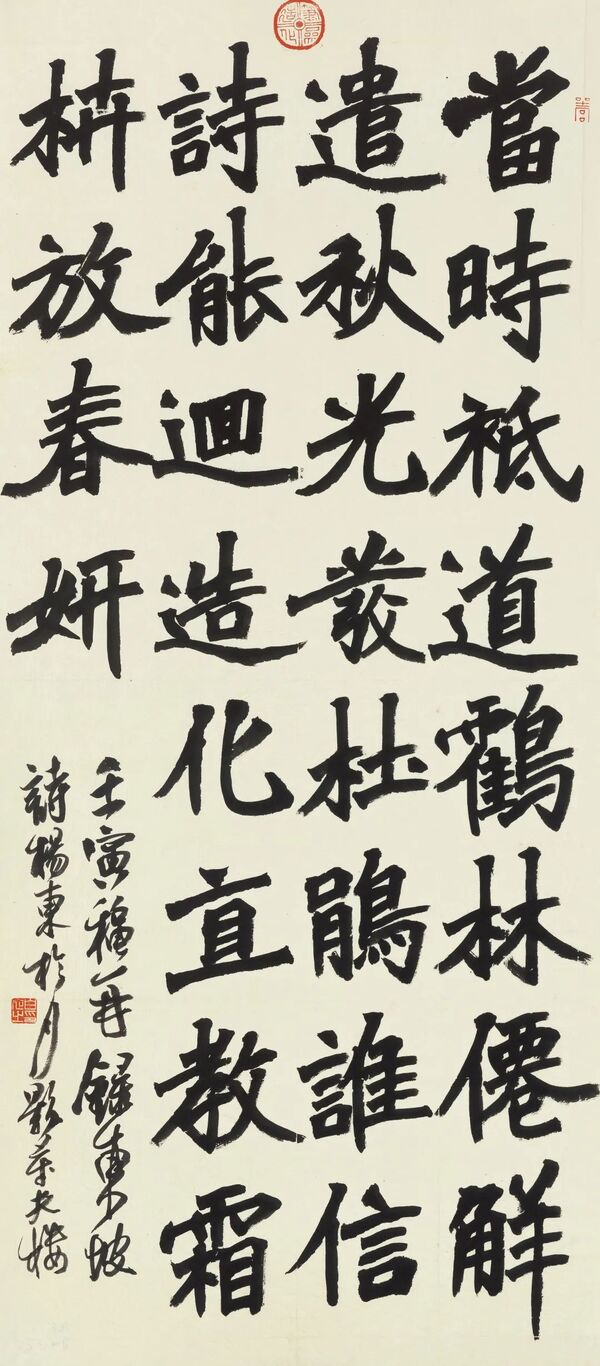 當時祗道鸖林僊解
遣秋光發杜鵑誰信
詩能迴造化直教霜
枿放春妍
壬寅穐錄東坡
詩楊東於月影樓